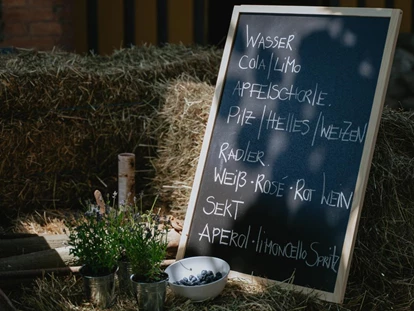 WASSER
COLA/LIMO
APFELSCHORLE.
PILZ/HELLES/WEIZEN
RADLER.
WEIß·ROSÉ·ROT WEIN
SEKT
APEROL·limoncello Spritz